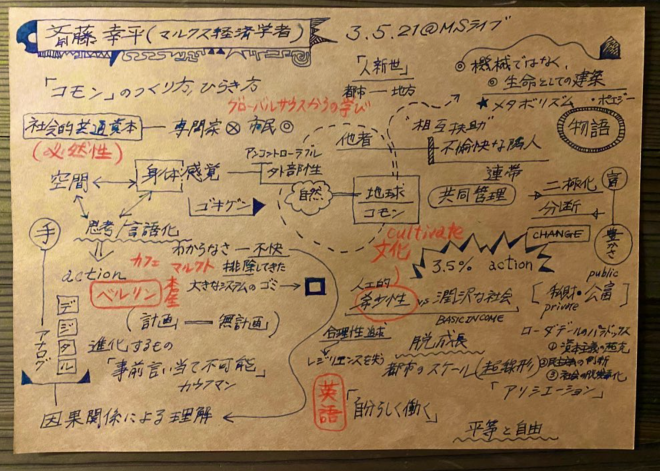 斎藤幸平(マルクス経済学者)
3.5.21@MSライブ
「コモン」のつくり方、ひらき方
「人新世」
都市 — 地方
◎ 機械ではなく、
◎ 生命としての建築
★メタボリズム
グローバルサウスからの学び
社会的共通資本 — 専門家 ⊗ 市民 ◎
(必然性)
他者
"相互扶助"
不愉快な隣人
物語
連帯
空間
身体感覚
アンコントローラブル
外部性
自然
地球
コモン
共同管理
二極化
分断
富
豊かさ
ゴキゲン
CHANGE
手
思考/言語化
わからなさ — 不快
cultivate
文化
3.5% action
action
カフェ
マルクト
本屋
排除してきた
大きなシステムのゴミ
ベルリン
人工的
希少性 vs 潤沢な社会
BASIC INCOME
public
private
デジタル
アナログ
(計画 — 無計画)
進化するもの
「事前言い当て不可能」
カウフマン
合理性追求
レジリエンスを失う
脱成長
ローダデールのパラドックス
都市のスケール(超線形)
「アリシエーション」
英語
「自分らしく働く」
因果関係による理解
平等と自由